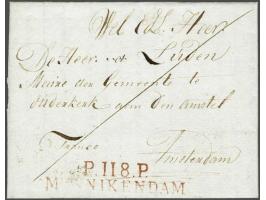 Wel Edl. Heer
De Heer Luden
Maire der Gemeente te
Ouderkerk aan den Amstel
Franco
Amsterdam
P.118.P.
M NNIKENDAM